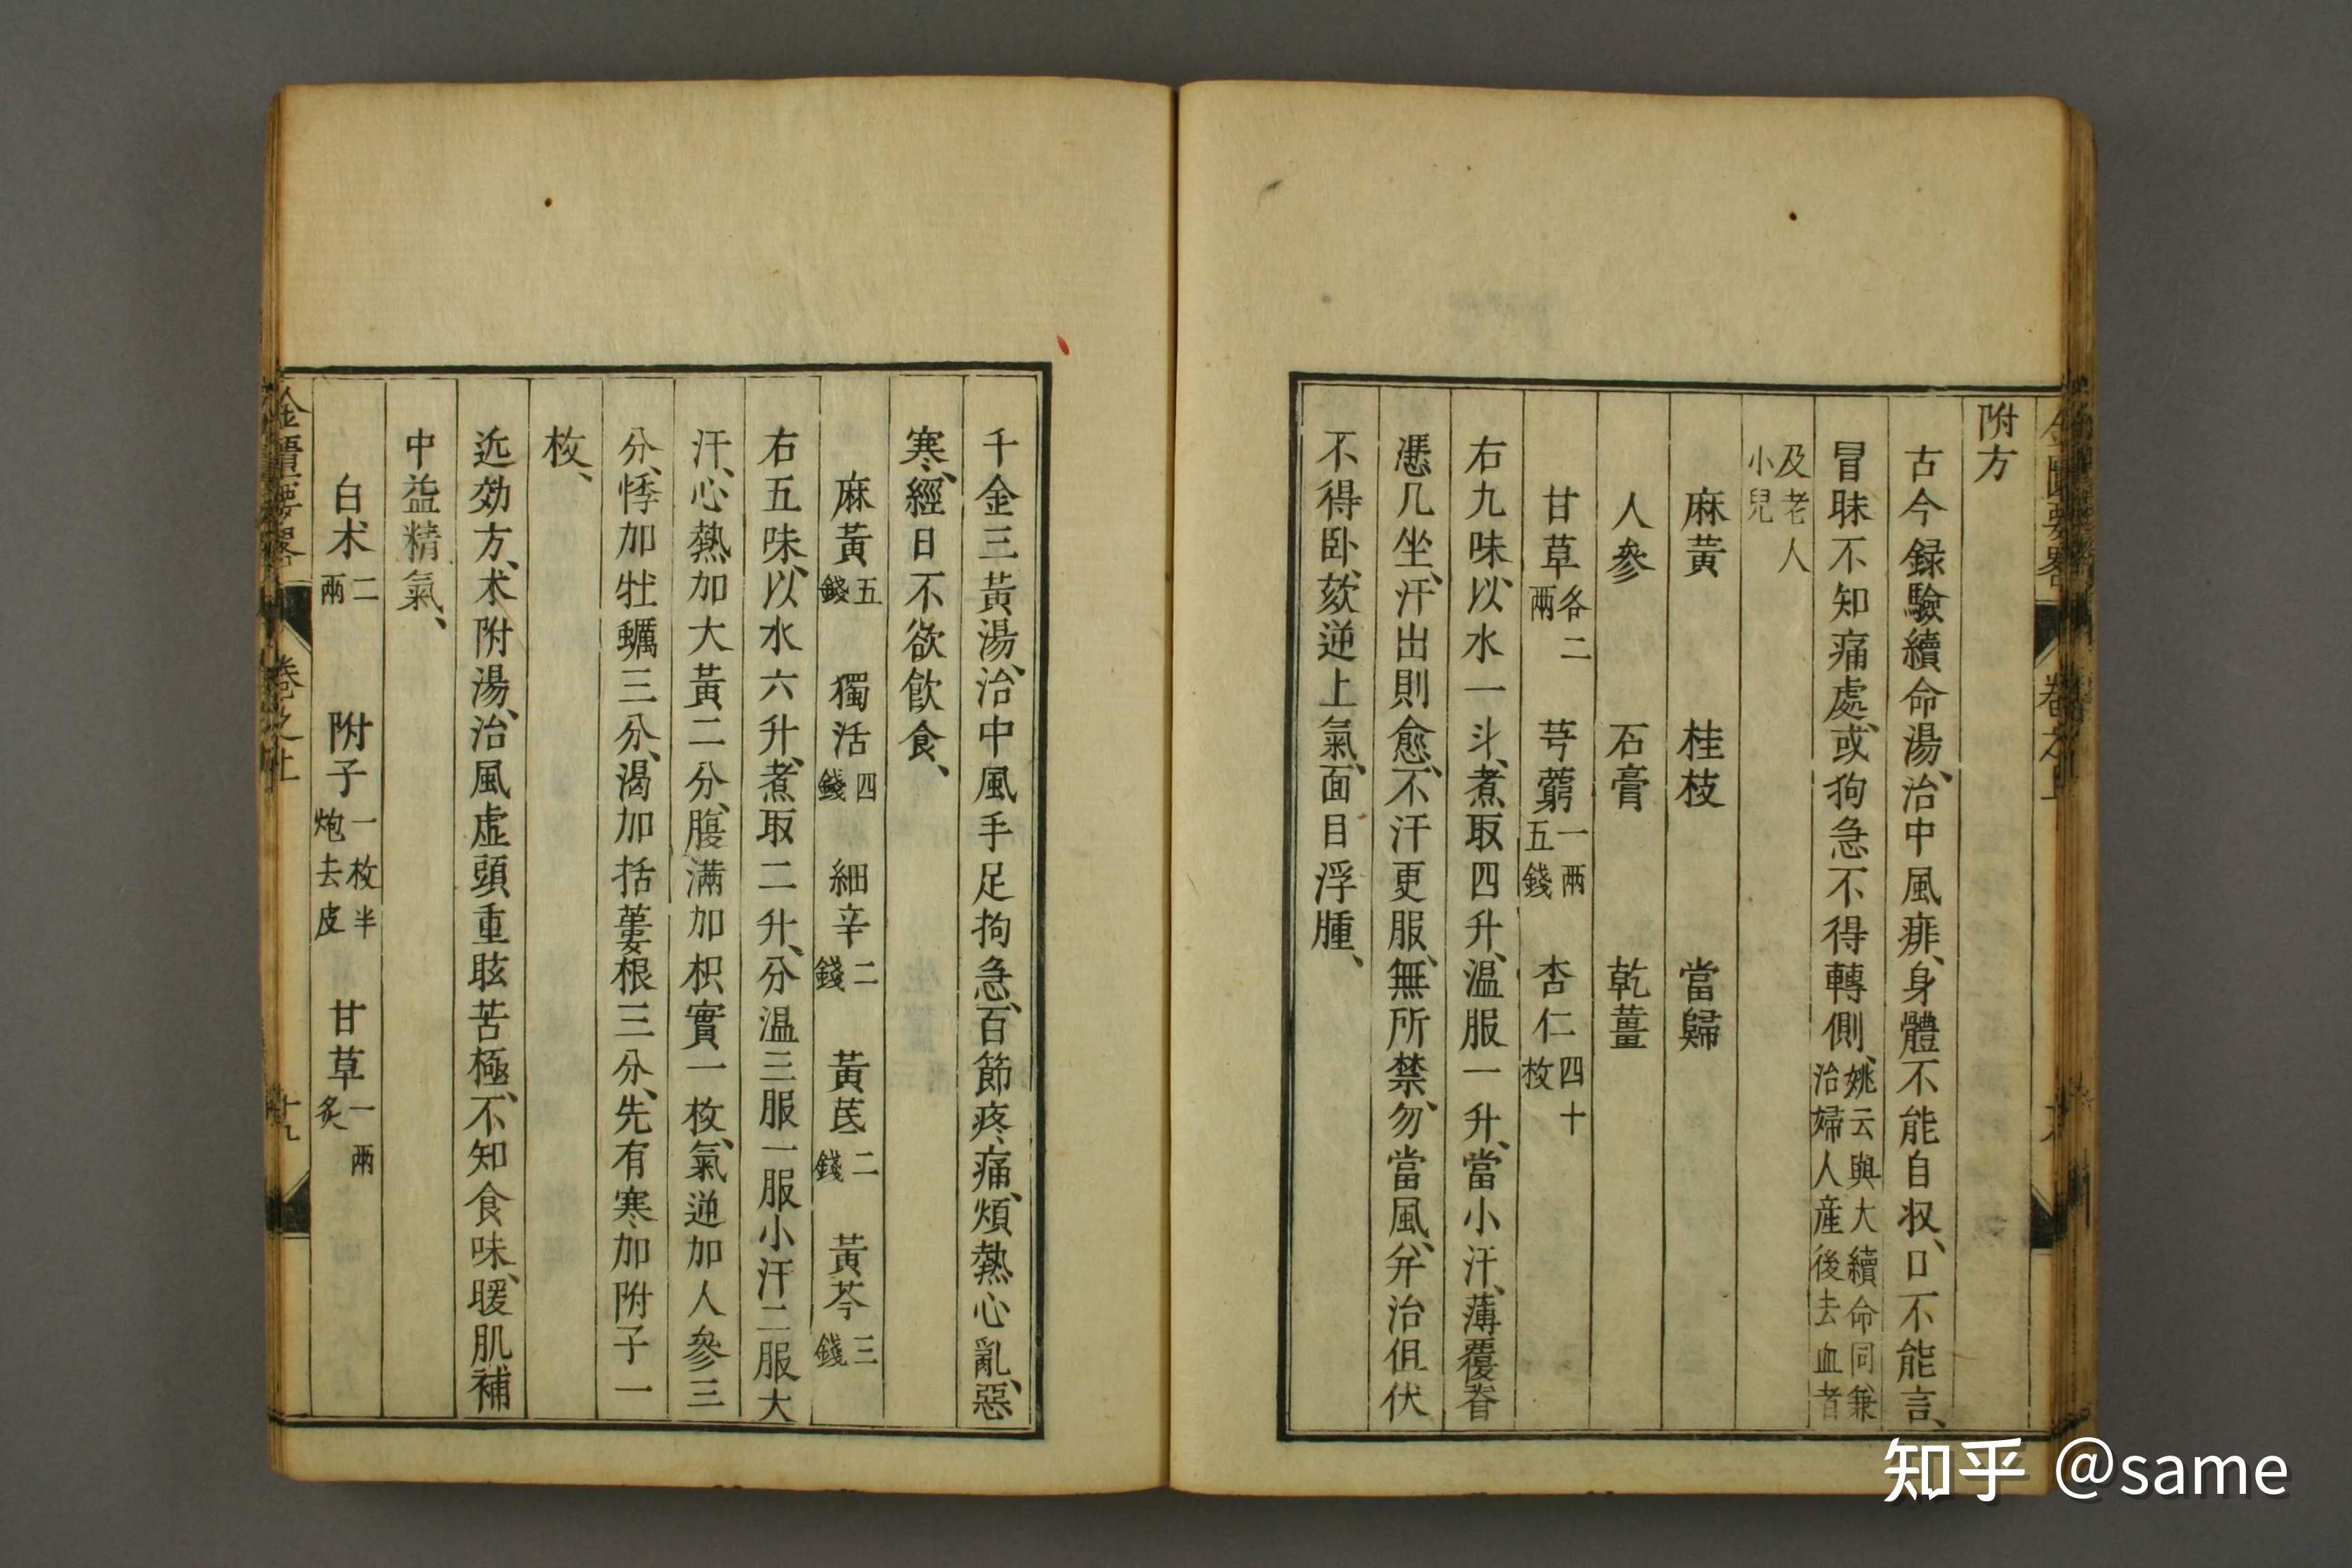 附方
古今録驗續命湯、治中風痱、身體不能自収、口不能言、
冒昧不知痛處、或拘急不得轉側、姚云與大續命同兼治婦人産後去血者
及老人小兒
麻黃　桂枝　當歸
人參　石膏　乾薑
甘草各二兩　芎藭一兩五錢　杏仁四十枚
右九味、以水一斗、煮取四升、温服一升、當小汗、薄覆脊
憑几坐、汗出則愈、不汗更服、無所禁、勿當風、并治但伏
不得卧、欬逆上氣、面目浮腫、
千金三黃湯、治中風手足拘急、百節疼痛、煩熱心亂、惡
寒、經日不欲飲食、
麻黃五錢　獨活四錢　細辛二錢　黃芪二錢　黃芩三錢
右五味、以水六升、煮取二升、分温三服一服小汗二服大
汗、心熱加大黃二分、腹満加枳實一枚、氣逆加人參三
分、悸加牡蠣三分、渴加括蔞根三分、先有寒加附子一
枚、
近効方、术附湯、治風虚頭重眩苦極、不知食味、暖肌補
中益精氣、
白术二兩　附子一枚半炮去皮　甘草一兩炙
金匱要畧　卷之上　十九
知乎 @same